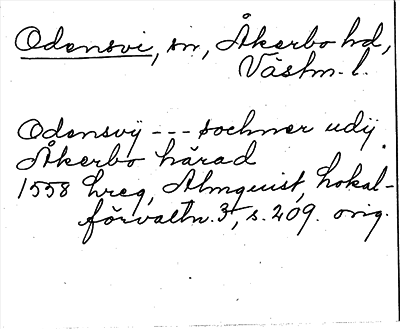 Odensvi, sn, Åkerbo hd,
Västm. l.
Odensvÿ --- sochner udÿ
Åkerbo härad
1558 hreg, Almquist, Lokal-
förvaltn. 3, s. 209. orig.